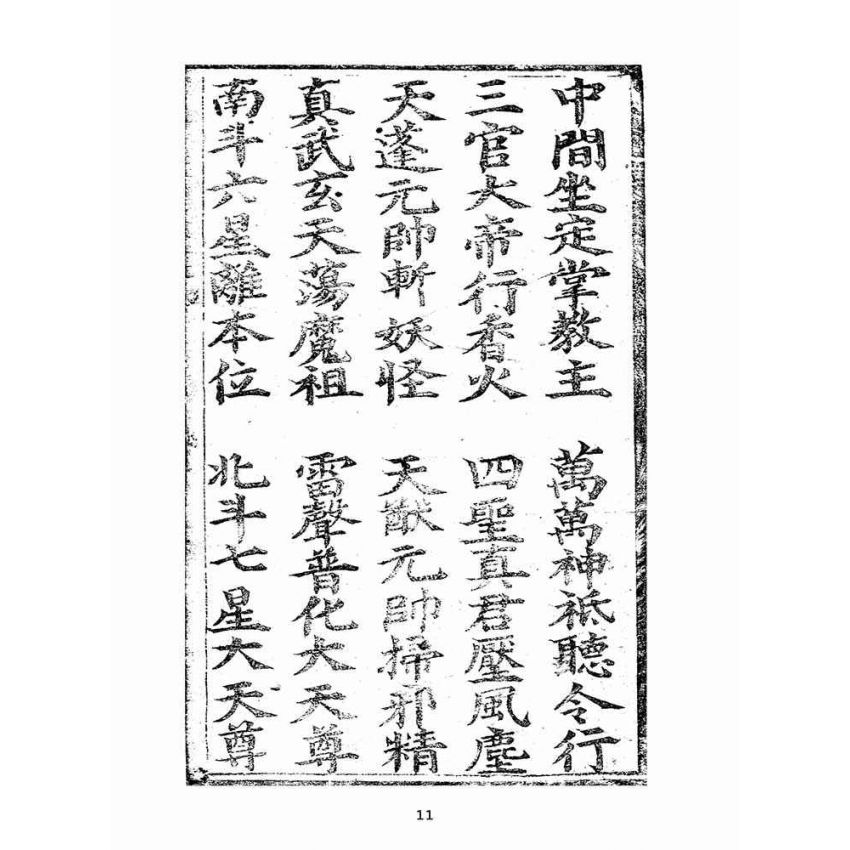 中間坐定掌教主　萬萬神祗聽令行
三官大帝行香火　四聖真君壓風塵
天蓬元帥斬妖怪　天猷元帥掃邪精
真武玄天蕩魔祖　雷聲普化大天尊
南斗六星離本位　北斗七星大天尊
11